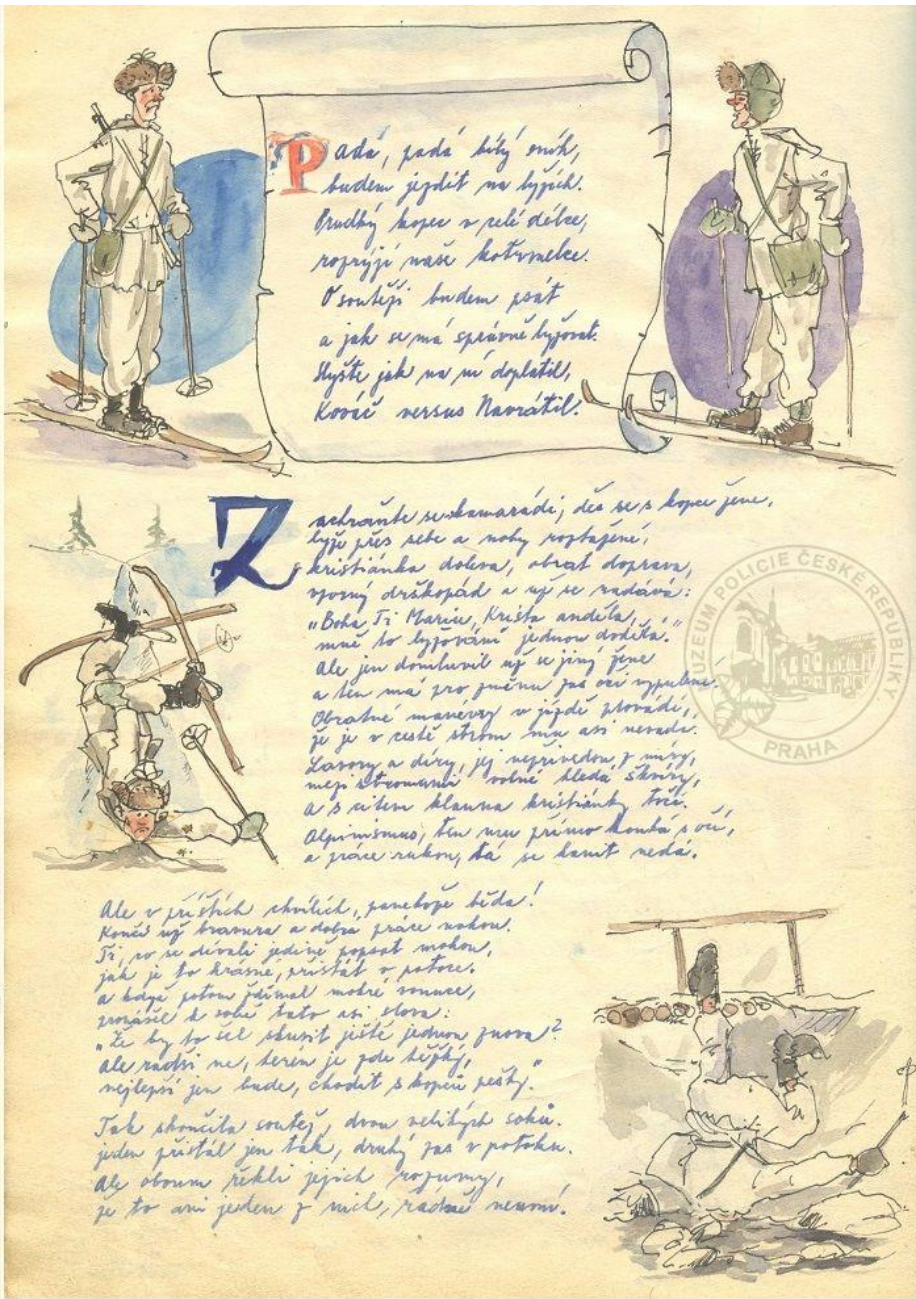 Padá, padá bílý sníh,
budem jezdit na lyžích.
Prudký kopec v celé délce,
rozryjí naše kotrmelce.
O soutěži budem psát
a jak se má správně lyžovat.
Slyšte jak na ni doplatil,
Kováč versus Navrátil.
Zachraňte se kamarádi, děs se s kopce žene,
lyže přes sebe a nohy roztažené,
kristiánka doleva, obrat doprava,
vzorný držkopád a už se nadává:
„Boha Ti Mariu, Krista anděla,
mně to lyžování jednou dodělá."
Ale jen domluvil už se jiný žene
a ten má pro změnu zas oči vypulené.
Obratné manévry v jízdě provádí,
že je v cestě strom mu asi nevadí.
Lavory a díry, jej nepřivedou z míry,
mezi stromami volné hledá škvíry,
a s citem klauna kristiánky točí.
Alpinismus, ten mu přímo kouká z očí,
a práce rukou, tá se hanit nedá.
Ale v příštích chvílích, panebože běda!
Končí už bravura a dobrá práce nohou.
Ti, co se dívali jedině popsat mohou,
jak je to krásné, přistát v potoce.
a když potom ždímal mokré onuce,
pronášel k sobě tato asi slova:
„Že by to šel zkusit ještě jednou znova?
ale radši ne, terén je zde těžký,
nejlepší jen bude, chodit s kopců pěšky."
Tak skončila soutěž, dvou velikých soků.
jeden přistál jen tak, druhý zas v potoku.
Ale oboum řekli jejich rozumy,
že to ani jeden z nich, řádně neumí.
MUZEUM POLICIE ČESKÉ REPUBLIKY
PRAHA